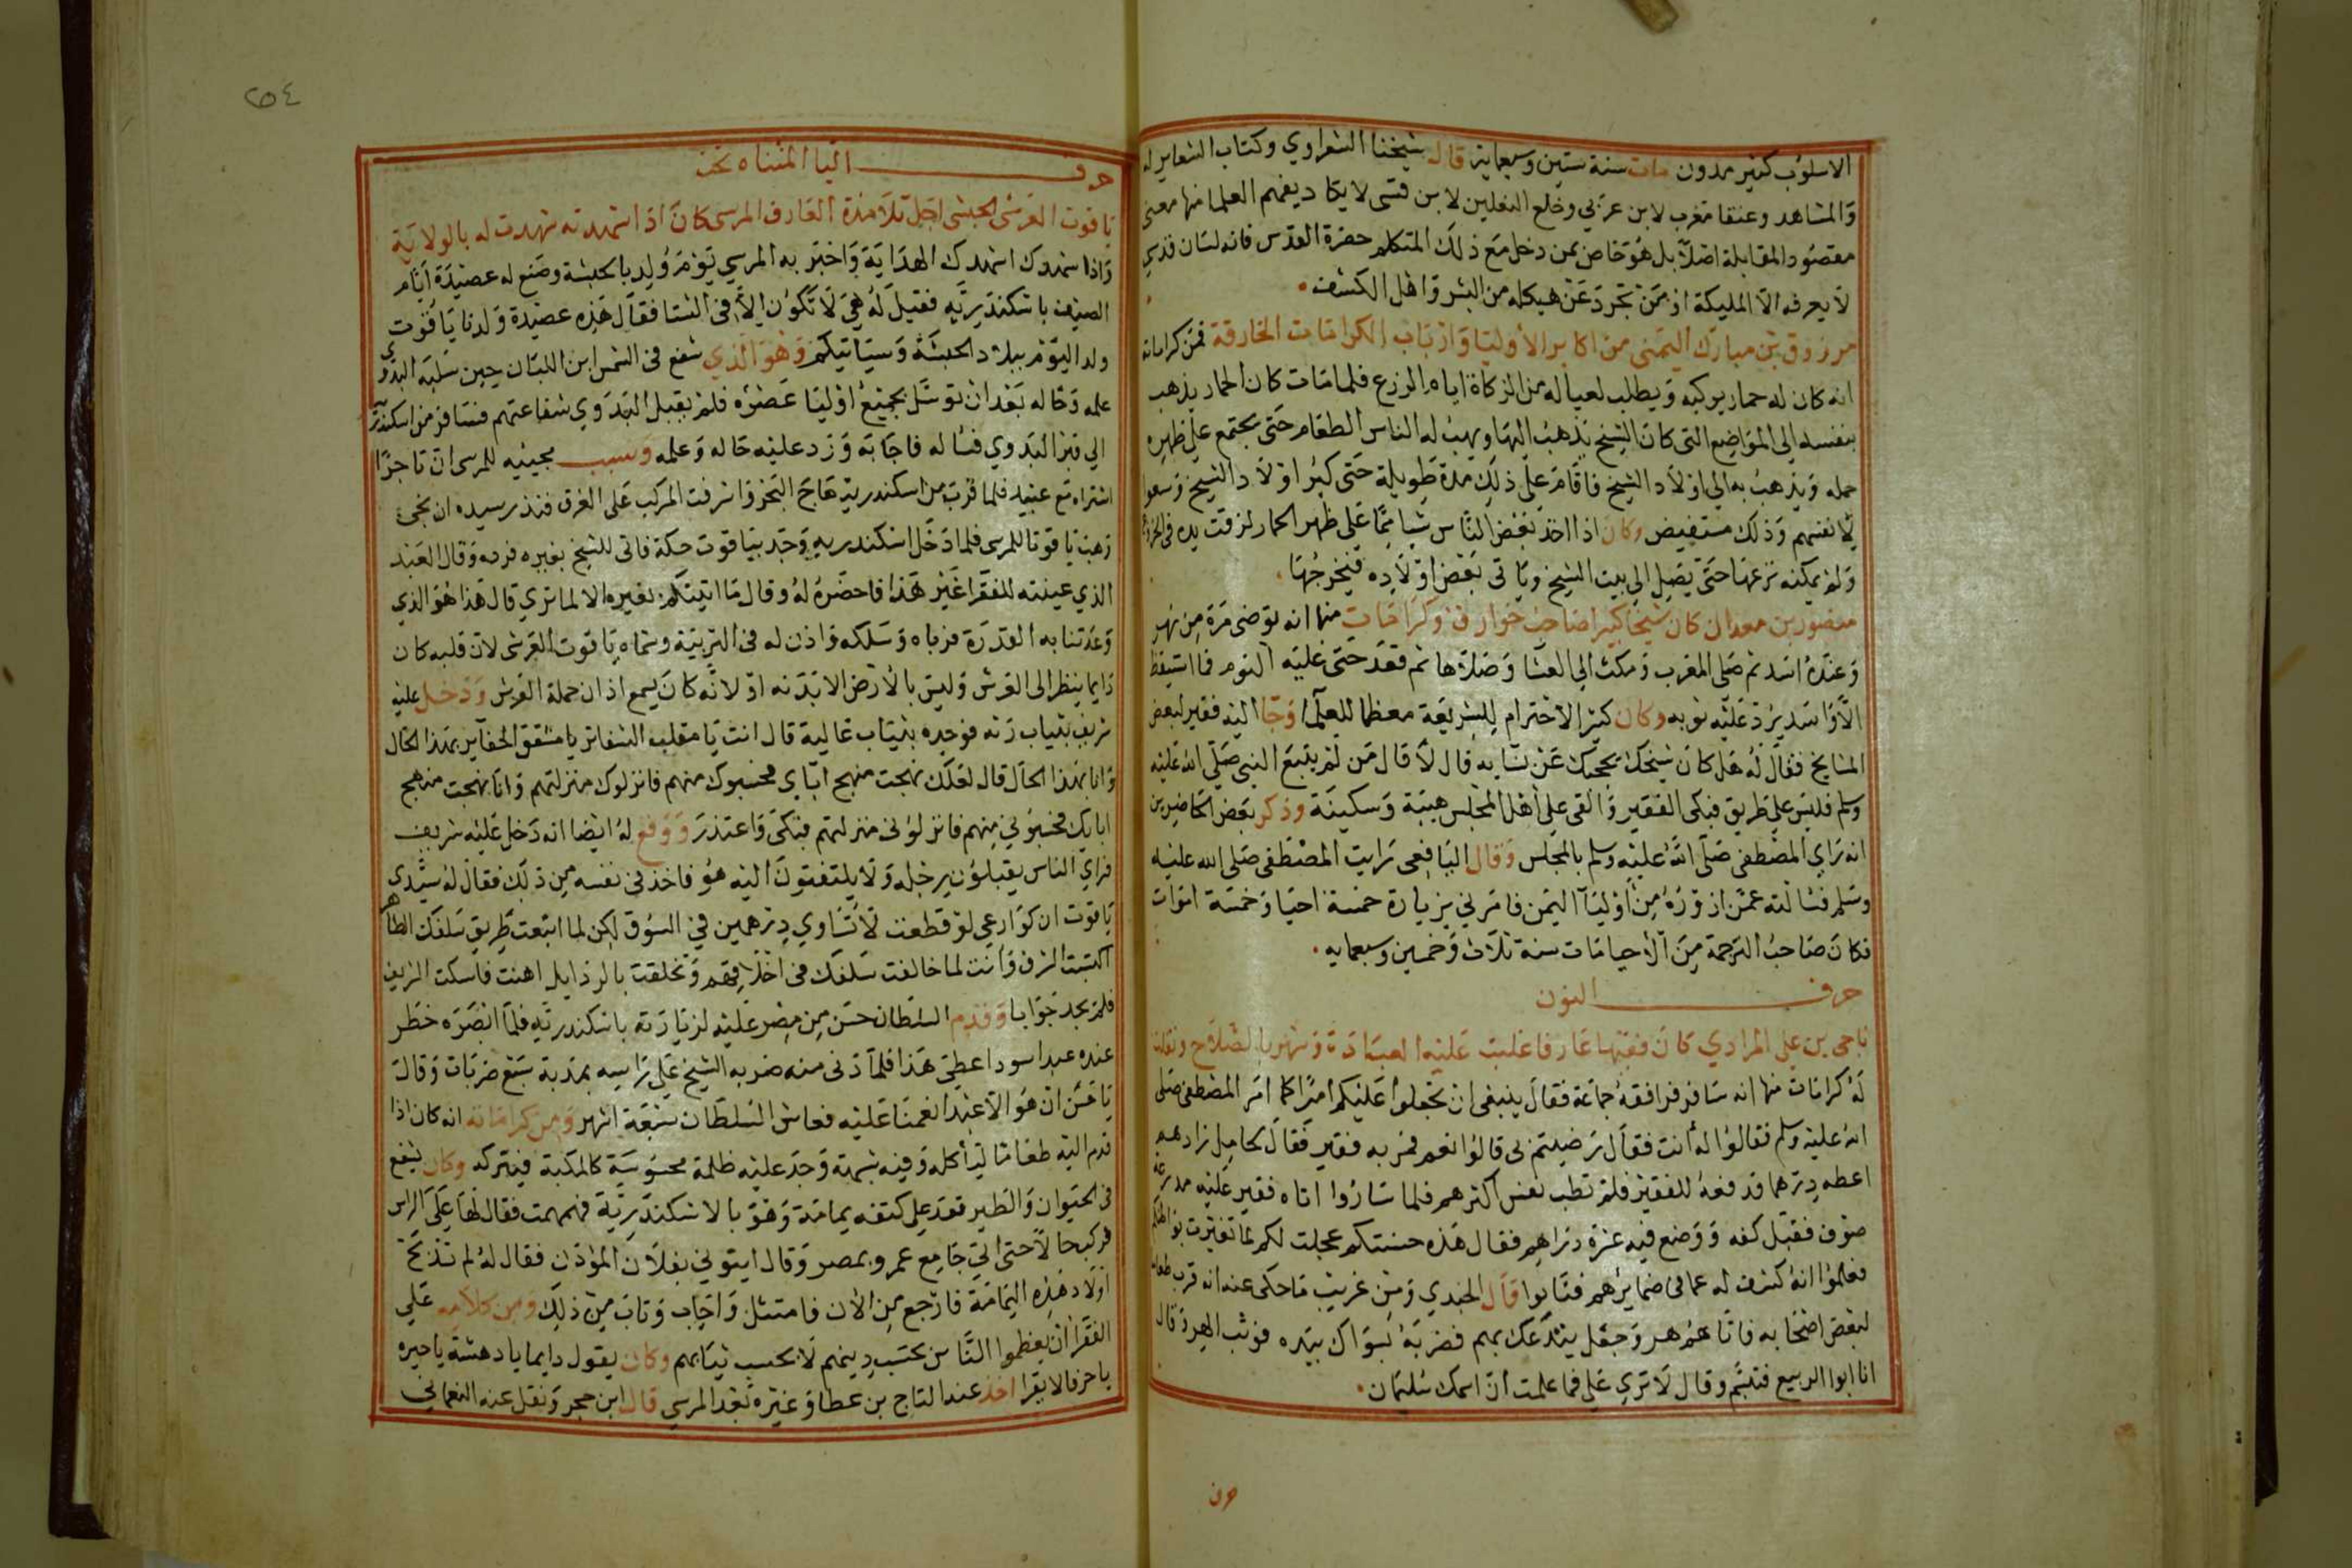 الاسلوب كثير مدون مات سنة ستين وسبعماية قال شيخنا الشعراوي وكتاب الشعاير له
والمشاهد وعنقا مغرب لابن عربي وخلع النعلين لابن قسى لا يكاد يفهم العلما منها معنى
مقصود المقابلة اصلا بل هو خاص بمن دخل مع ذلك المتكلم حضرة القدس فانه لسان قدسي
لا يعرفه الا المليكة او من تجرد عن هيكله من البشر واهل الكشف
مرزوق بن مبارك اليمنى من اكابر الاوليا وارباب الكرامات الخارقة فمن كراماته
انه كان له حمار يركبه ويطلب لعياله من الزكاة ايام الزرع فلما مات كان الحمار يذهب
بنفسه الى المواضع التى كان الشيخ يذهب اليها ويهب له الناس الطعام حتى يجتمع على ظهره
حمله ويذهب به الى اولاد الشيخ فاقام على ذلك مدة طويلة حتى كبر اولاد الشيخ وسعوا
لانفسهم وذلك مستفيض وكان اذا اخذ بعض الناس شيا مما على ظهر الحمار لزقت يده فى الخرج
ولم يمكنه نزعها حتى يصل الى بيت الشيخ وياتى بعض اولاده فيخرجها
منصور بن معدان كان شيخا كبيرا صاحب خوارق وكرامات منها انه توضى مرة من نهر
وعنده اسد ثم صلى المغرب ومكث الى العشا وصلاها ثم قعد حتى غلبه النوم فما استيقظ
الا والاسد يرد عليه ثوبه وكان كثير الاحترام للشريعة معظما للعلما وجا اليه فقير لبعض
المشايخ فقال له هل كان شيخك يحجبك عن نسايه قال لا قال من لم يتبع النبي صلى الله عليه
وسلم فليس على طريق فبكى الفقير والقى على اهل المجلس هيبة وسكينة وذكر بعض الحاضرين
انه راي المصطفى صلى الله عليه وسلم بالمجلس وقال اليافعى رايت المصطفى صلى الله عليه
وسلم فسالته عمن ازوره من اوليا اليمن فامرني بزيارة خمسة احيا وخمسة اموات
فكان صاحب الترجمة من الاحيا مات سنة ثلاث وخمسين وسبعمايه
حرف النون
ناجى بن على المرادي كان فقيها عارفا غلبت عليه العبادة وشهر بالصلاح ونقلت
له كرامات منها انه سافر فرافقه جماعة فقال ينبغى ان تجعلوا عليكم اميرا كما امر المصطفى صلى
الله عليه وسلم فقالوا له انت فقال رضيتم بى قالوا نعم فمر به فقير فقال لحامل زادهم
اعطه درهما فدفعه للفقير فلم تطب نفس اكثرهم فلما ساروا اتاه فقير عليه مدرعة
صوف فقبل كفه ووضع فيه عشرة دراهم فقال هذه حسنتكم عجلت لكم لما تغيرت بواطنكم
فعلموا انه كشف له عما فى ضمايرهم فتابوا قال الجندي ومن غريب ما حكى عنه انه قرب طعام
لبعض اصحابه فاتاهم هر وجعل يتدعك بهم فضربه بسواك بيده فوثب الهر وقال
انا ابوا الربيع فتبسم وقال لا تري على فما علمت ان اسمك سليمان
حرف
٢٥٤
حرف اليا المثناه تحت
ياقوت العرشى الحبشى اجل تلامذة العارف المرسى كان اذا استمددته شهدت له بالولاية
واذا استهديك استهديك الهداية واخبر به المرسي يوم ولد بالحبشة وصنع له عصيدة ايام
الصيف باسكندرية فقيل له هى لا تكون الا فى الشتا فقال هذه عصيدة ولدنا ياقوت
ولد اليوم ببلاد الحبشة وسياتيكم وهو الذي شفع فى الشمس ابن اللبان حين سلبه البدوي
علمه وحاله بعد ان توسل بجميع اوليا عصره فلم يقبل البدوي شفاعتهم فسافر من اسكندرية
الي قبر البدوي فساله فاجابه ورد عليه حاله وعلمه وسبب مجيئه للمرسى ان تاجرا
اشتراه مع عبيد فلما قرب من اسكندرية هاج البحر واشرفت المركب على الغرق فنذر سيده ان نجى
وهب ياقوتا للمرسى فلما دخل اسكندرية وجد بياقوت حكة فاتى للشيخ بغيره فرده وقال العبد
الذي عينته للفقرا غير هذا فاحضره له وقال ما اتيتكم بغيره الا لما تري قال هذا هو الذي
وعدتنا به القدرة فرباه وسلكه واذن له فى التربية وسماه ياقوت العرشى لان قلبه كان
دايما ينظر الى العرش وليس بالارض الا بدنه او لانه كان يسمع اذان حملة العرش ودخل عليه
شريف بثياب رثه فوجده بثياب عالية قال انت يا مقلب الشفاتر يا مشقق الحفاير بهذا الحال
وانا بهذا الحال قال لعلك نهجت منهج اباي فحسبوك منهم فانزلوك منزلتهم وانا نهجت منهج
ابايك فحسبوني منهم فانزلونى منزلتهم فبكى واعتذر ووقع له ايضا انه دخل عليه شريف
فراي الناس يقبلون رجله ولا يلتفتون اليه هو فاخذ فى نفسه من ذلك فقال له سيدي
ياقوت ان كوارعي لو قطعت لا تساوي درهمين في السوق لكن لما اتبعت طريق سلفك الطاهر
اكتسبت الشرف وانت لما خالفت سلفك فى اخلاقهم وتخلقت بالرذايل اهنت فاسكت الشريف
فلم يجد جوابا وقدم السلطان حسن من مصر عليه لزيارته باسكندرية فلما ابصره خطر
عنده عبد اسود اعطى هذا فلما دنى منه ضربه الشيخ على راسه بمذبة سبع ضربات وقال
يا حسن ان هو الا عبد انعمنا عليه فعاش السلطان سبعة اشهر ومن كراماته انه كان اذا
قدم اليه طعاما لياكله وفيه شبهة وجد عليه ظلمة محسوسة كالمكبة فيتركه وكان يشفع
فى الحيوان والطير فقعد على كتفه يمامة وهو بالاسكندرية فهمهمت فقال لها على الراس
فركب حالا حتى اتى جامع عمرو بمصر وقال ايتوني بفلان المؤذن فقال له لم تذبح
اولاد هذه اليمامة فارجع من الان فامتثل واجاب وتاب من ذلك ومن كلامه على
الفقرا ان يعظموا الناس بحسب دينهم لا بحسب ثيابهم وكان يقول دايما يا دهشة يا حيره
يا حرفا لا يقرا اخذ عند التاج بن عطا وغيره بعد المرسي قال ابن حجر ونقل عنه النعمانى